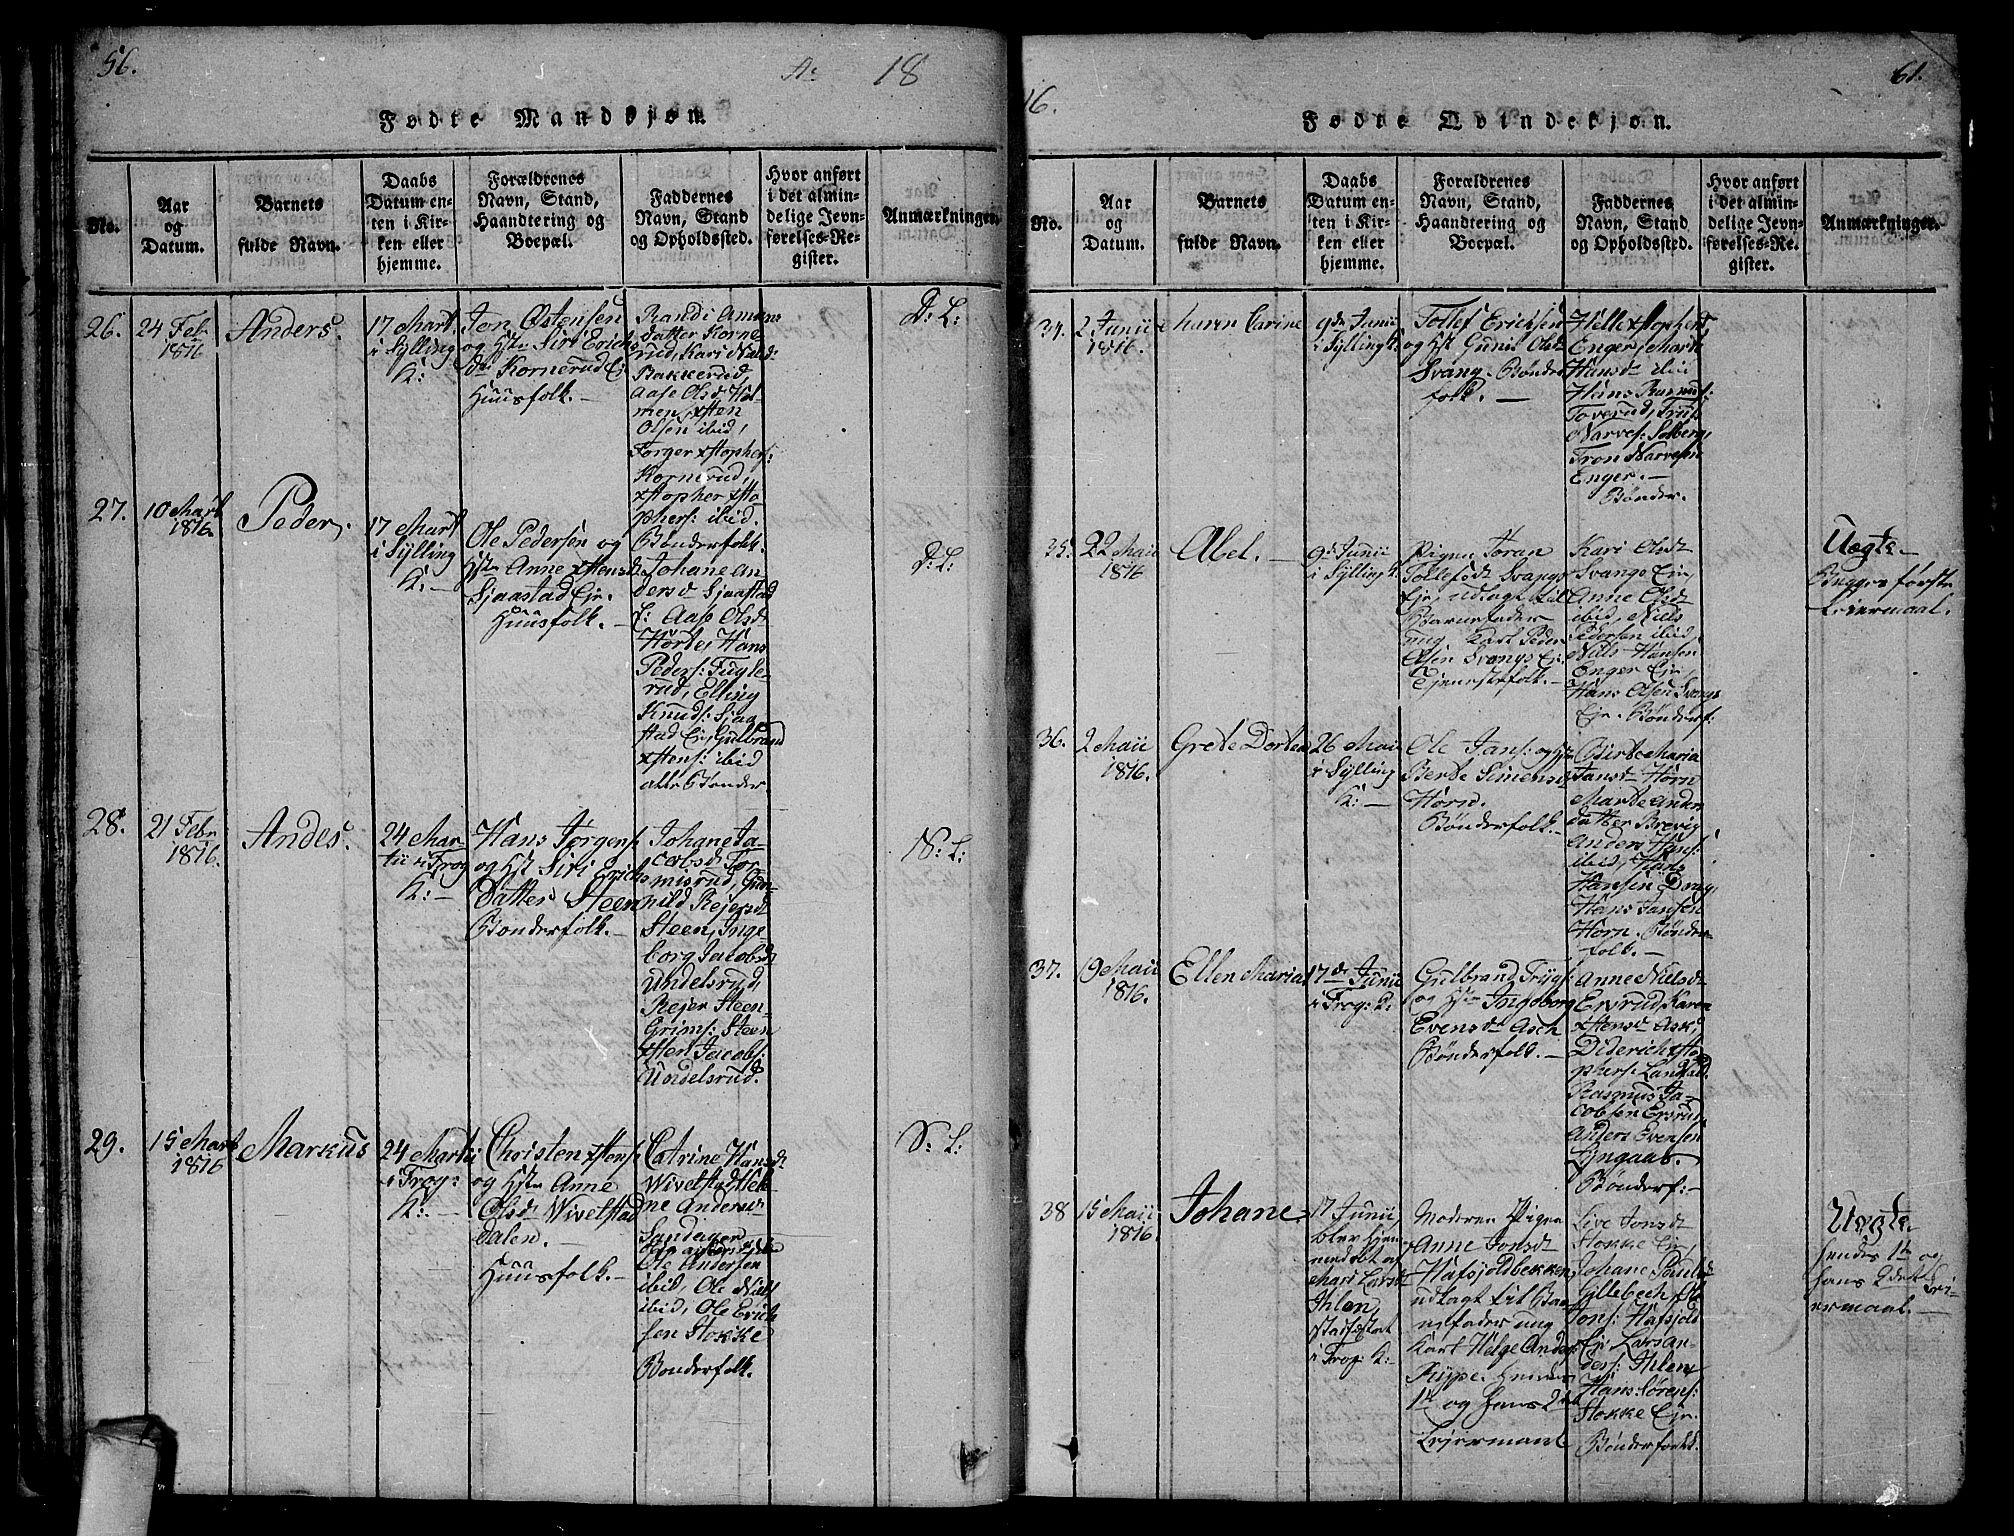 56.
Aº 18
Fødte Mandskjøn.
No.
Aar
og
Datum.
Barnets
fulde Navn.
Daabs
Datum en-
ten i Kir-
ken eller
hjemme.
Forældrenes
Navn, Stand,
Haandtering og
Boepæl.
Faddernes
Navn, Stand
og Opholdssted.
Hvor anført
i det almin-
delige Jevn-
førelses-Re-
gister.
Anmærkninger.
26.
24 Feb
1816
Anders.
17 Mart
i Sylling
K:
Jon Østensen
og Hst Siri Erichs
dr Kornerud Ej.
Huusfolk.
Randi Amun
datter Korne
rud, Kari Niels
Bakkerud,
Aase Olsd Hol
men, Xsten
Olsen ibid,
Torger Xstophers:
Kornerud,
Xstopher Xsto
phers: ibid.
Bønderfolk.
D: L:
27.
10 Mart
1816.
Peder,
17 Mart
i Sylling
K: —
Ole Pedersen og
Hst Anne Xstensd
Sjaastad Eje.
Huusfolk. —
Johane An
dersd Sjaastad
E: Aase Olsd
Horte, Hans
Peders: Fugle
rud, Elling
Knuds: Sjaa
stad Eje, Gulbrand
Xstens: ibid
alle Bønder
D: L:
28.
21 Febr
1816.
Andes.
24 Mar-
tii i Frog
K: —
Hans Jørgens:
og Hst Siri Erichs
Datter Steen
Bonderfolk. —
Johane Ja-
cobsd Tor
misrud, Gun
hild Rejersd
Steen, Inge
borg Jacobsd
Undelsrud,
Rejer Steen
Grims: Steen
Xsten Jacobs:
Undelsrud.
N: L:
29.
15 Mart
1816
Markus
24 Martii
i Frog:
K: —
Christen Xstens:
og Hst Anne
Olsd Wivelstad
dalen. —
Huusfolk. —
Catrine Hansd
Wivelstad, Hele
ne Andersd
Sandager
Ole Andersen
ibid, Ole Niels
ibid, Ole Erich
sen Stokke
Bonderfolk.
S: L:
16.
61.
Fødte Qvindekjøn.
No.
Aar
og
Datum.
Barnets
fulde Navn.
Daabs
Datum en-
ten i Kir-
ken eller
hjemme.
Forældrenes
Navn, Stand,
Haandtering og
Boepæl.
Faddernes
Navn, Stand
og Opholdssted.
Hvor anført
i det almin-
delige Jevn-
førelses-Re-
gister.
Anmærkninger.
34.
2 Junii
1816.
Maren Carine
9de Junii
i Sylling K:
Tollef Erichsen
og Hst Gunil Olsd
Svang. Bønder
folk. —
Helle Xstophers,
Enger, Mari
Hansd ibid
Hans Rasmus:
Toverud, Truls
Narves: Solberg,
Tron Narvesen
Enger. —
Bønder.
35.
22 Maii
1816
Abel. —
9de Junii
i Sylling K:
Pigen Joran
Tollefsd Svangs
Eje, udlagt til
Barnefader
ung Karl Peder
Olsen Svangs Ej.
Tjenestefolk. —
Kari Olsd
Svangs Eje,
Anne Olsd
ibid, Niels
Pedersen ibid,
Niels Hansen
Enger Eje,
Hans Olsen Svangs
Eje. Bønderf:
Uægte —
Begges første
Leiermaal.
36.
2 Maii
1816.
Grete Dorte
26 Maii
i Sylling
K: —
Ole Jans: og Hst
Berte Simensd
Horn.
Bønderfolk. —
Birte Maria
Jansd Horn
Marte Anders
datter Brevig
Anders Hans:
ibid, Hans
Hansen Drag,
Hans Jansen
Horn. Bønder-
folk. —
37.
19 Maii
1816.
Ellen Maria
17de Junii
i Frog: K:
Gulbrand Trygs:
og Hst Ingeborg
Evensd Asch
Bønderfolk. —
Anne Nielsd
Ersrud, Karen
Xstensd Ask,
Diderich Xsto
phers: Landfald
Rasmus Ja-
cobsen Ersrud,
Anders Evensen
Lyngaas.
Bønderf: —
38
15 Maii
1816.
Johane
17 Junii,
blev hjem
medøbt af
Mari Larsd
Ihlen,
stadfæstet
i Frog: K:
Moderen Pigen
Anne Jonsd
Hafsjoldbekken,
udlagt til Bar
nefader ung
Karl Helge Anders:
Kuype. Hendes
1te og hans 2det
Leiermaal
Live Jonsd
Stokke Eje,
Johane Paulsd
Gillebech, Ole
Jons: Hafsjold
Eje, Lars An-
ders: Ihlen,
Hans Sørens:
Stokke Eje.
Bønderfolk.
Uægte.
hendes 1te og
hans 2det Lei-
ermaal. —